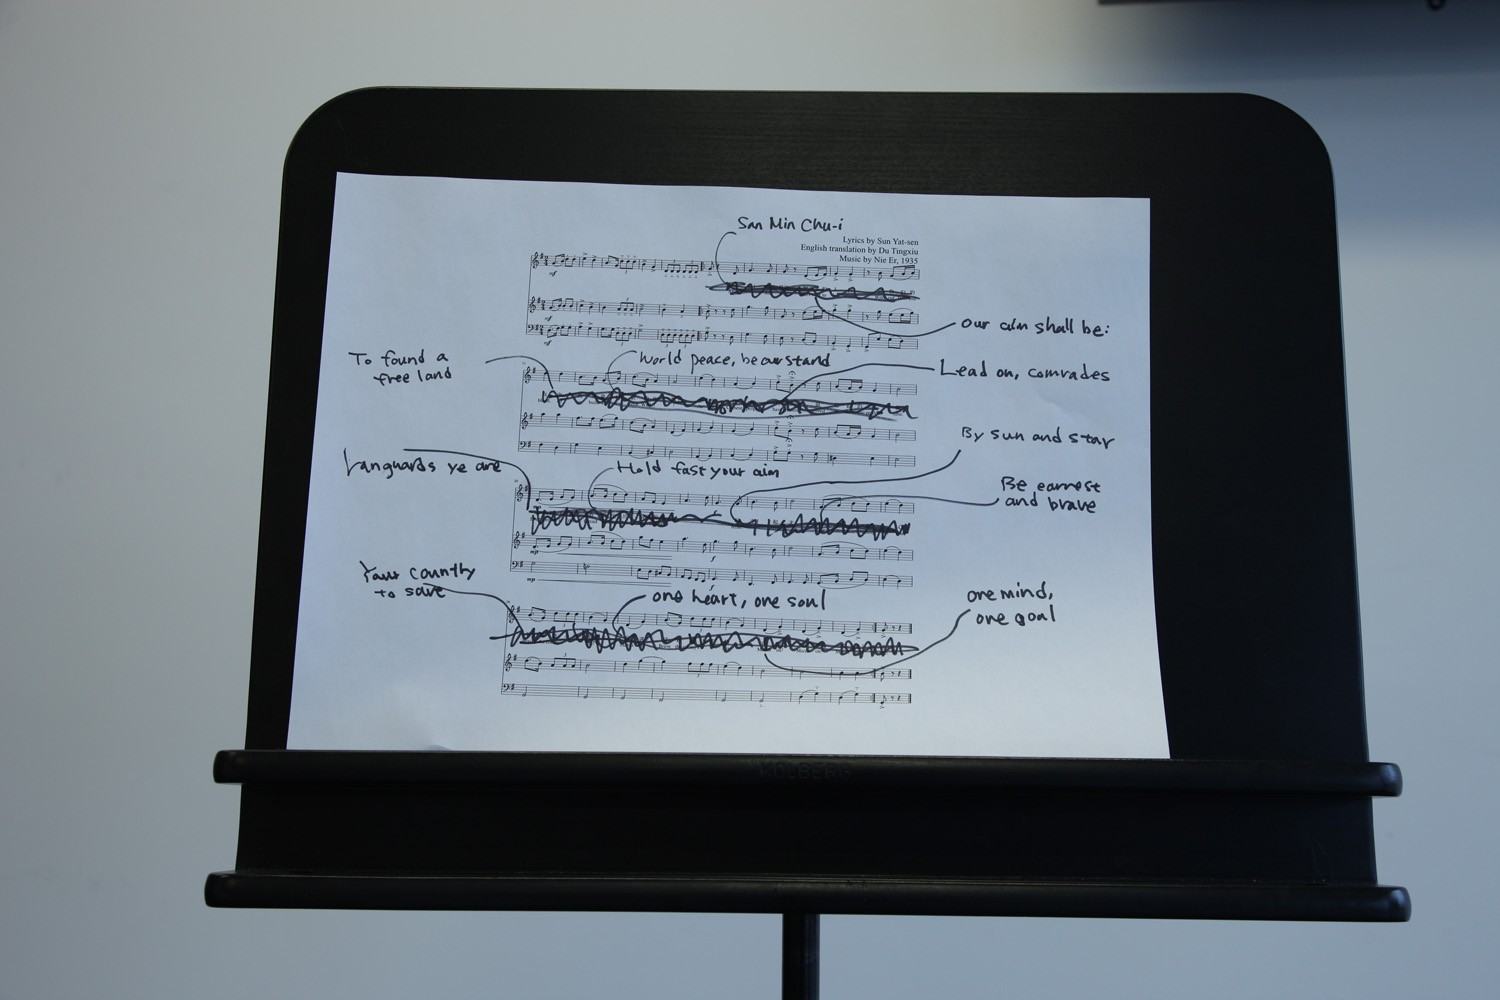 San Min Chu-i
Lyrics by Sun Yat-sen
English translation by Du Tingxiu
Music by Nie Er, 1935
our aim shall be:
To found a
free land
World peace, be our stand
Lead on, comrades
Vanguards ye are
Hold fast your aim
By sun and star
Be earnest
and brave
Your country
to save
one heart, one soul
one mind,
one goal
KOLBERG